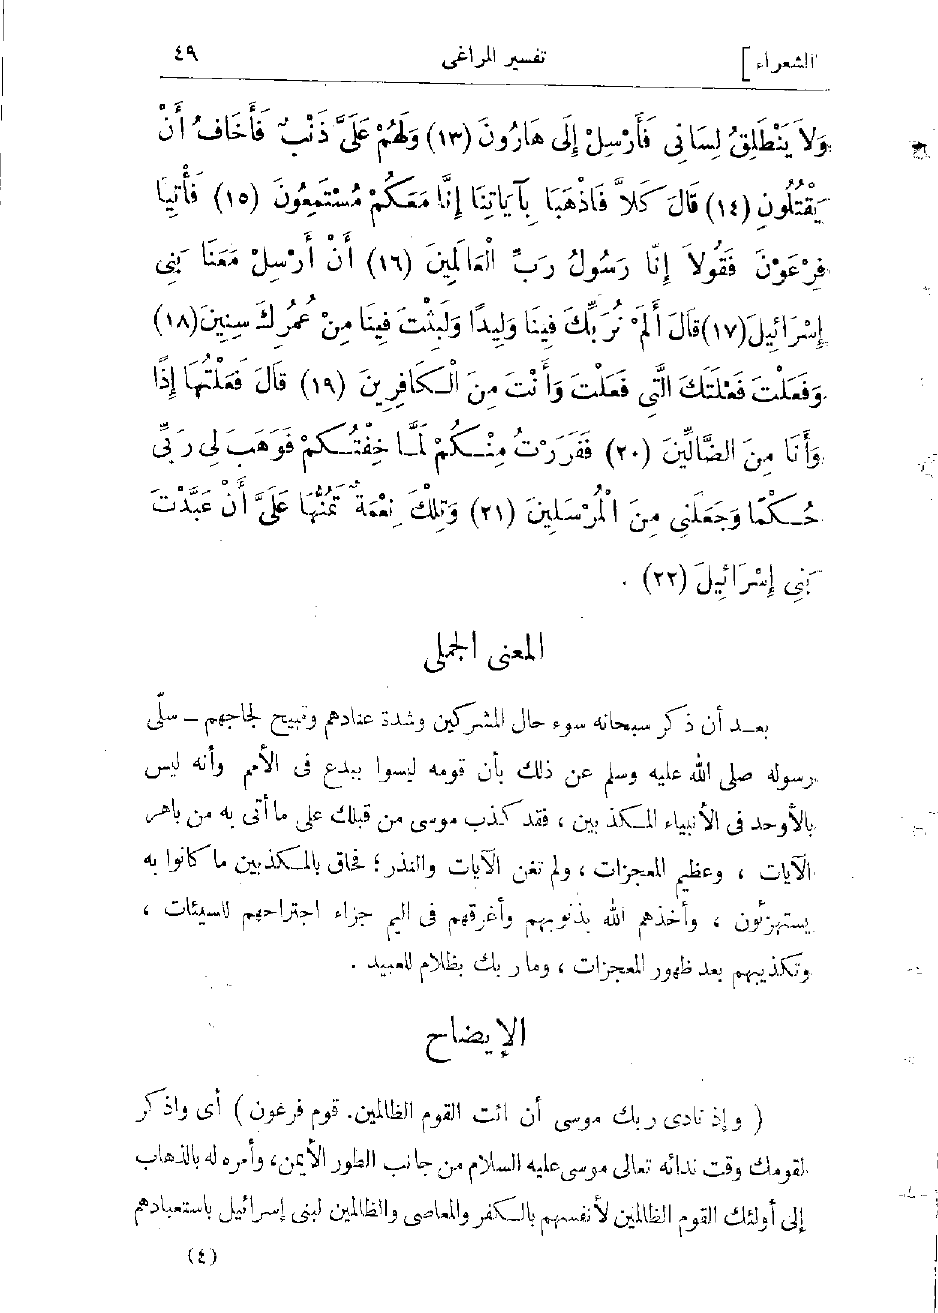 الشعراء]
تفسير المراغى
٤٩
وَلاَ يَنْطَلِقُ لِسَانِى فَأَرْسِلْ إِلَى هَارُونَ (١٣) وَلَهُمْ عَلَىَّ ذَنْبٌ فَأَخَافُ أَنْ
يَقْتُلُونِ (١٤) قَالَ كَلاَّ فَاذْهَبَا بِآيَاتِنَا إِنَّا مَعَكُمْ مُسْتَمِعُونَ (١٥) فَأْتِيَا
فِرْعَوْنَ فَقُولاَ إِنَّا رَسُولُ رَبِّ الْعَالَمِينَ (١٦) أَنْ أَرْسِلْ مَعَنَا بَنِى
إِسْرَائِيلَ (١٧) قَالَ أَلَمْ نُرَبِّكَ فِينَا وَلِيدًا وَلَبِثْتَ فِينَا مِنْ عُمُرِكَ سِنِينَ (١٨)
وَفَعَلْتَ فَعْلَتَكَ الَّتِى فَعَلْتَ وَأَنْتَ مِنَ الْكَافِرِينَ (١٩) قَالَ فَعَلْتُهَا إِذًا
وَأَنَا مِنَ الضَّالِّينَ (٢٠) فَفَرَرْتُ مِنْكُمْ لَمَّا خِفْتُكُمْ فَوَهَبَ لِى رَبِّى
حُكْمًا وَجَعَلَنِى مِنَ الْمُرْسَلِينَ (٢١) وَتِلْكَ نِعْمَةٌ تَمُنُّهَا عَلَىَّ أَنْ عَبَّدْتَ
بَنِى إِسْرَائِيلَ (٢٢) .
المعنى الجملى
بعد أن ذكر سبحانه سوء حال المشركين وشدة عنادهم وقبيح لجاجهم – سلّى
رسوله صلى الله عليه وسلم عن ذلك بأن قومه ليسوا ببدع فى الأمم وأنه ليس
بالأوحد فى الأنبياء المكذبين ، فقد كذب موسى من قبلك على ما أتى به من باهر
الآيات ، وعظيم المعجزات ، ولم تغن الآيات والنذر ؛ فحاق بالمكذبين ما كانوا به
يستهزئون ، وأخذهم الله بذنوبهم وأغرقهم فى اليم جزاء اجتراحهم للسيئات ،
وتكذيبهم بعد ظهور المعجزات ، وما ربك بظلام للعبيد .
الإيضاح
( وإذ نادى ربك موسى أن ائت القوم الظالمين. قوم فرعون ) أى واذكر
لقومك وقت ندائه تعالى موسى عليه السلام من جانب الطور الأيمن، وأمره له بالذهاب
إلى أولئك القوم الظالمين لأنفسهم بالكفر والمعاصى والظالمين لبنى إسرائيل باستعبادهم
(٤)